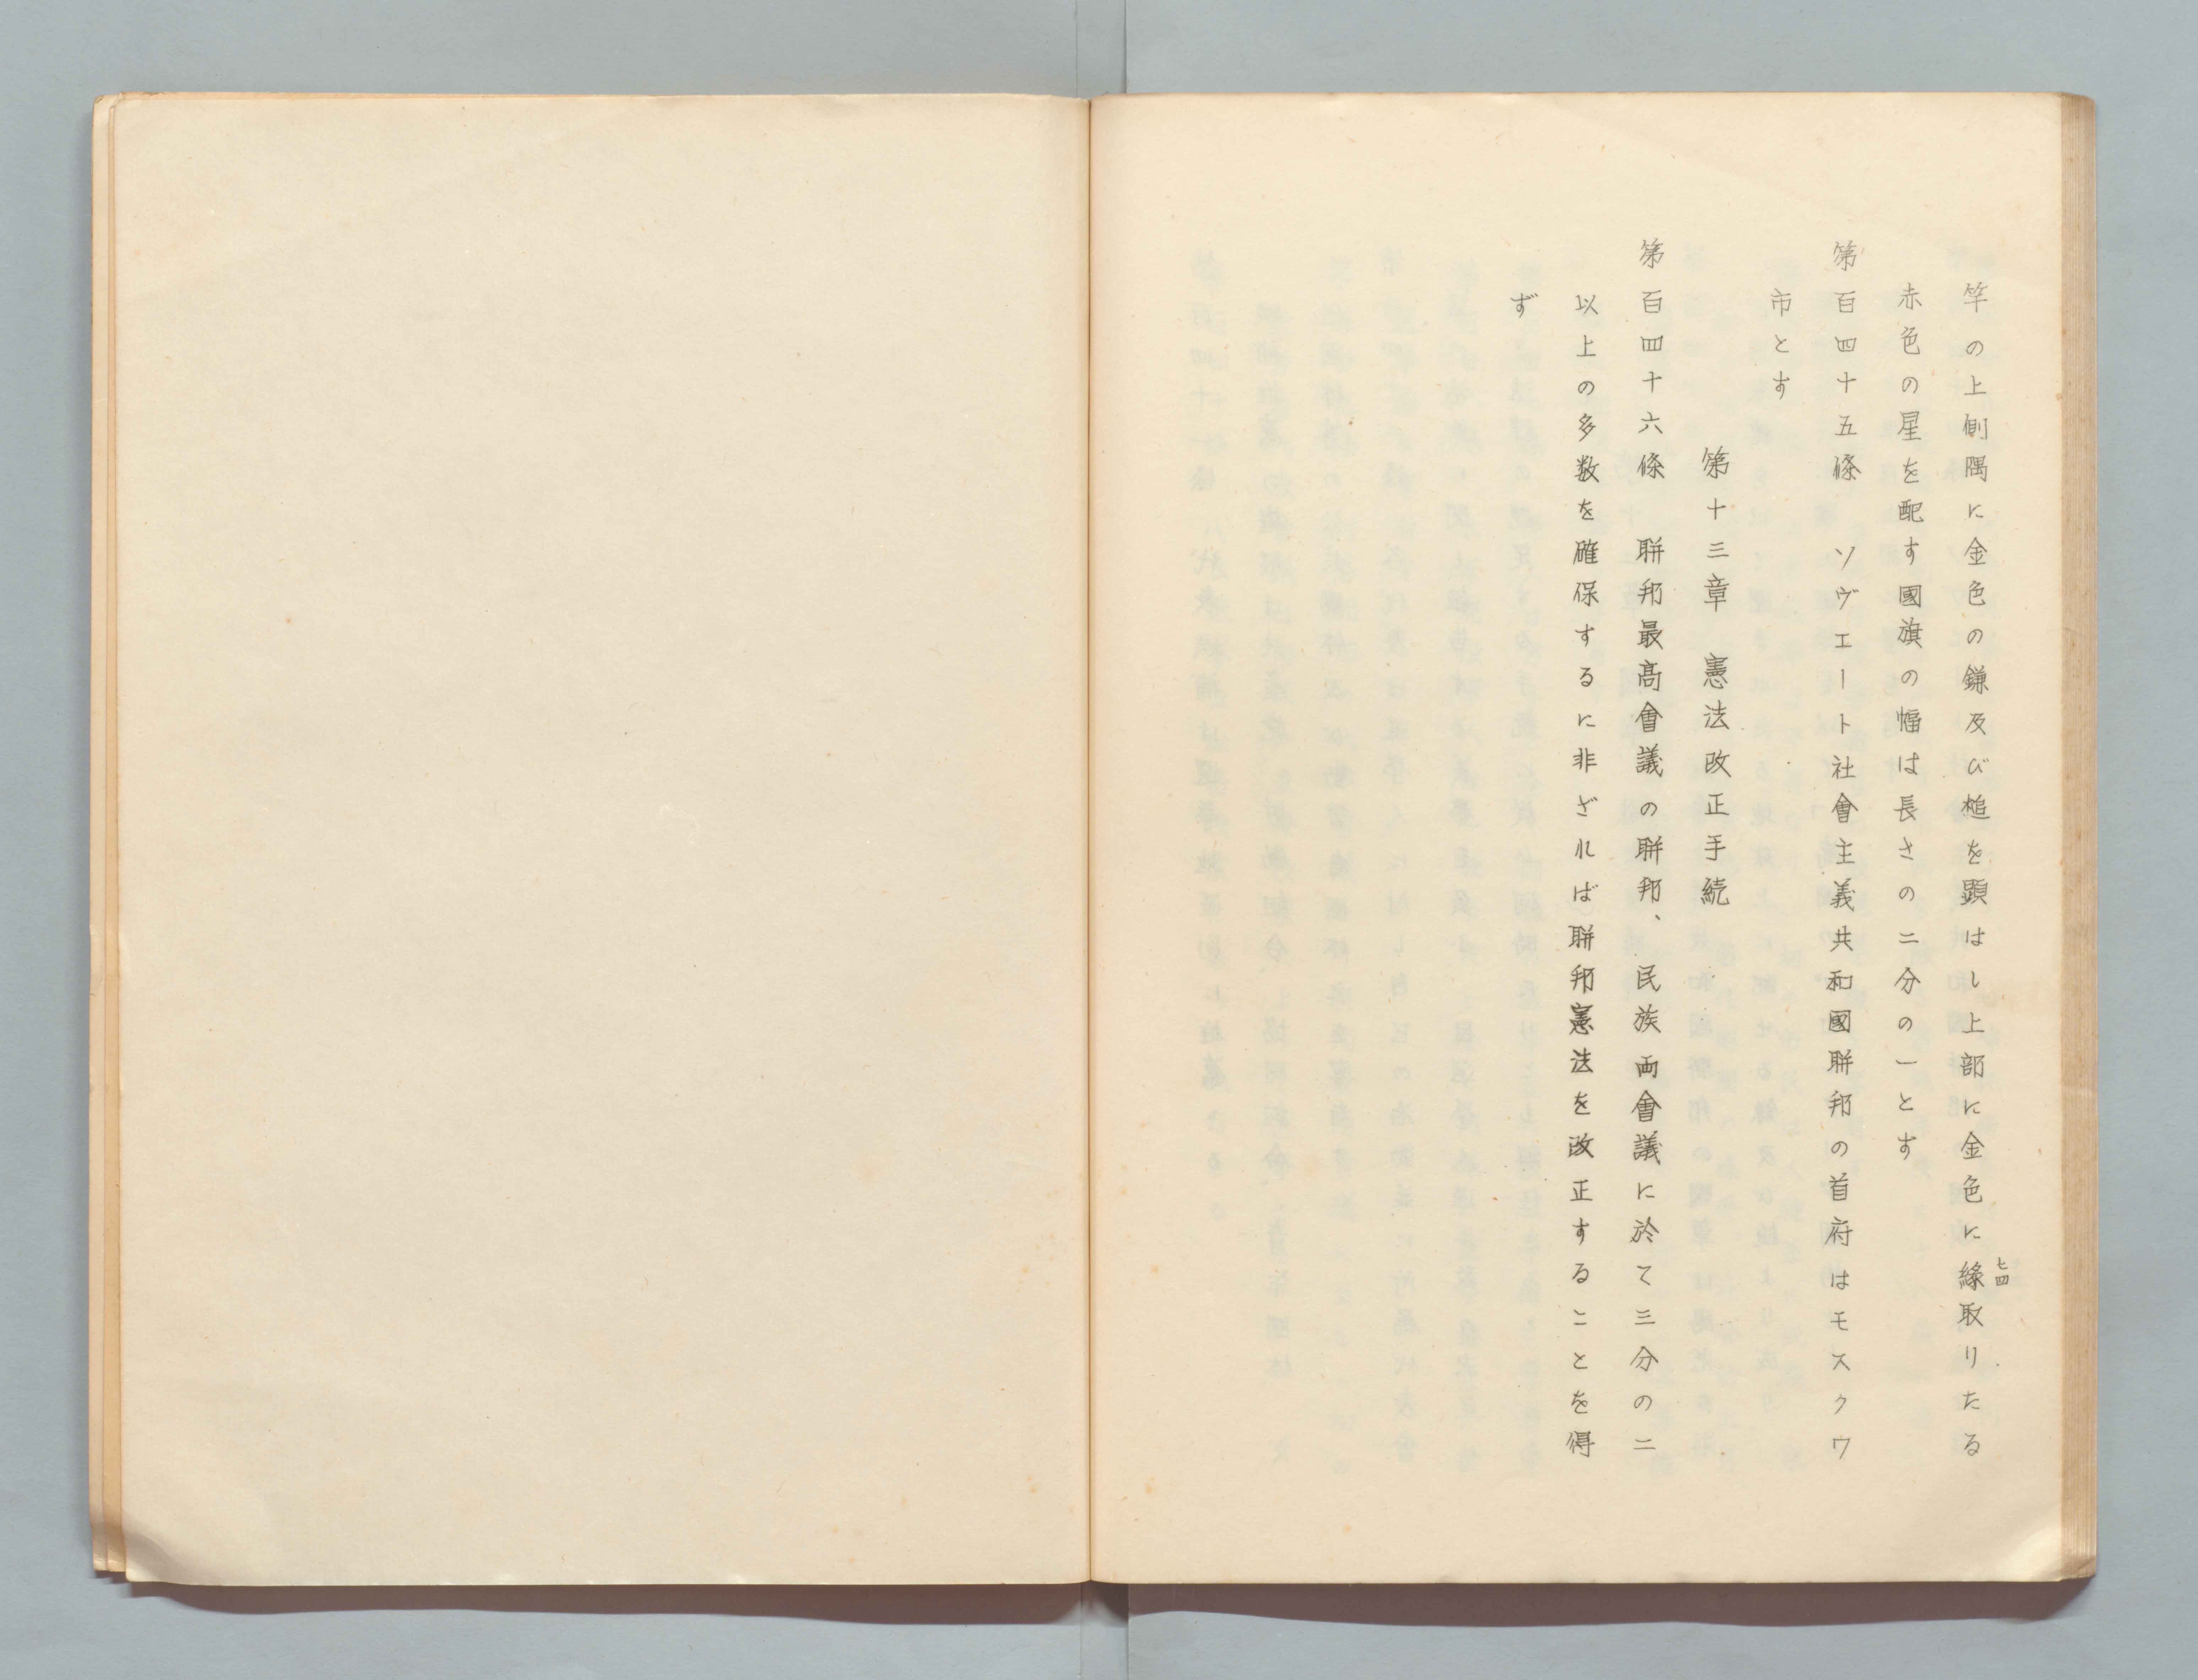 竿の上側隅に金色の鎌及び槌を顕はし上部に金色に緣取りたる
赤色の星を配す國旗の幅は長さの二分の一とす
第百四十五條　ソヴエート社會主義共和國聯邦の首府はモスクワ
市とす
第十三章　憲法改正手続
第百四十六條　聯邦最高會議の聯邦、民族両會議に於て三分の二
以上の多数を確保するに非ざれば聯邦憲法を改正することを得
ず
七四